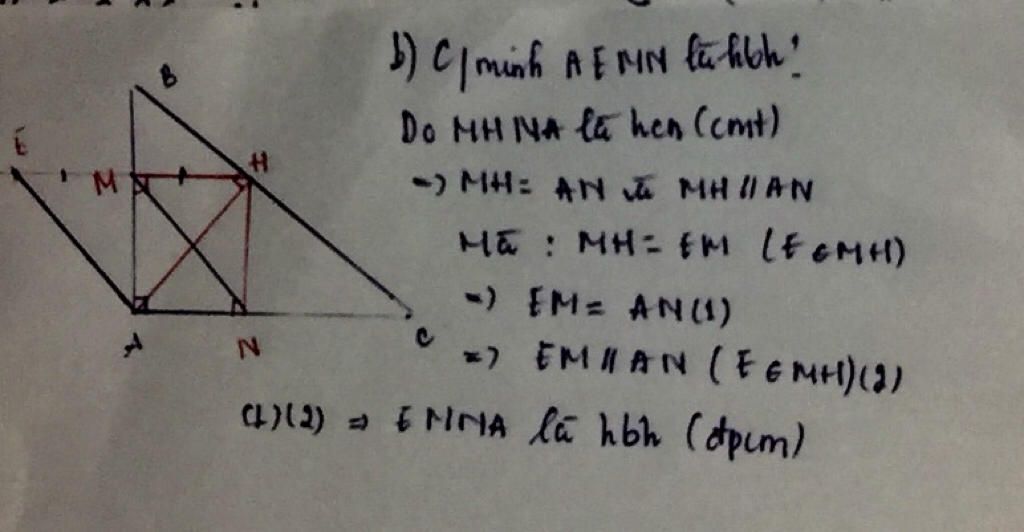 b) C/minh AEMN là hbh:
Do MHNA là hcn (cmt)
=> MH = AN và MH // AN
Mà : MH = EM (E ∈ MH)
=> EM = AN (1)
=> EM // AN (E ∈ MH) (2)
(1)(2) => EMNA là hbh (đpcm)
B
E
M
H
A
N
C